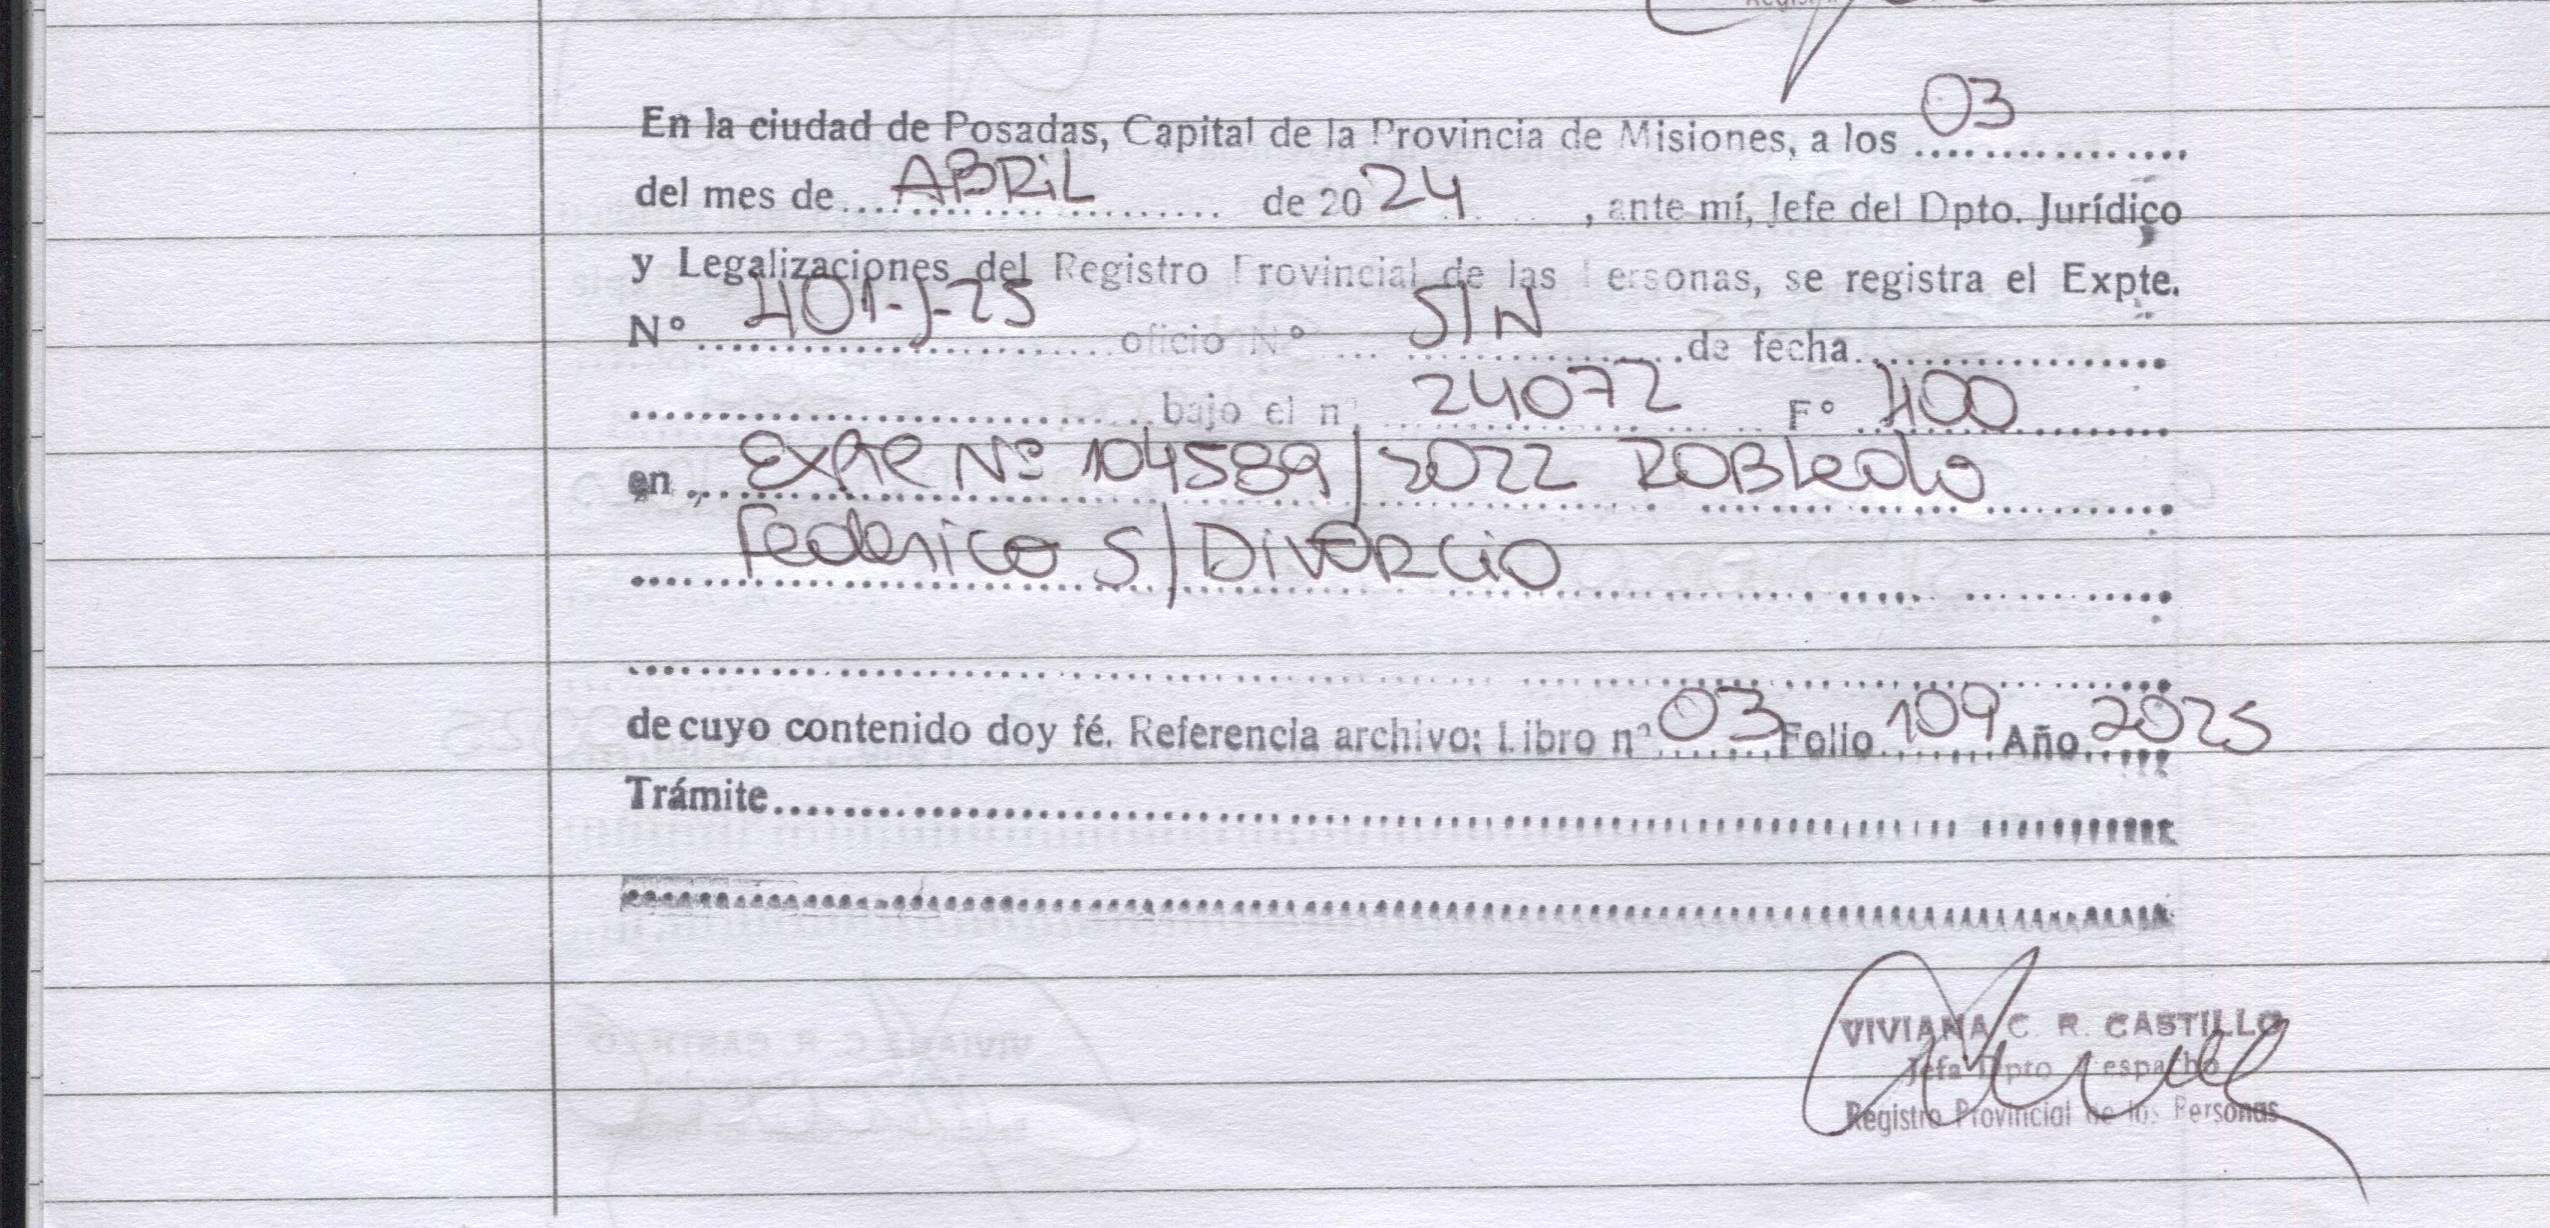 En la ciudad de Posadas, Capital de la Provincia de Misiones, a los 03
del mes de ABRiL de 2024, ante mí, Jefe del Dpto. Jurídico
y Legalizaciones del Registro Provincial de las Personas, se registra el Expte.
N° 401-J-25 oficio N° S/N de fecha
bajo el n° 24072 F° 400
en Expte Nº 104589/2022 ROBLedo
Federico S/ DiVORCiO
de cuyo contenido doy fé. Referencia archivo: Libro n° 03 Folio 109 Año 2025
Trámite
VIVIANA C. R. CASTILLO
Jefa Dpto Despacho
Registro Provincial de las Personas